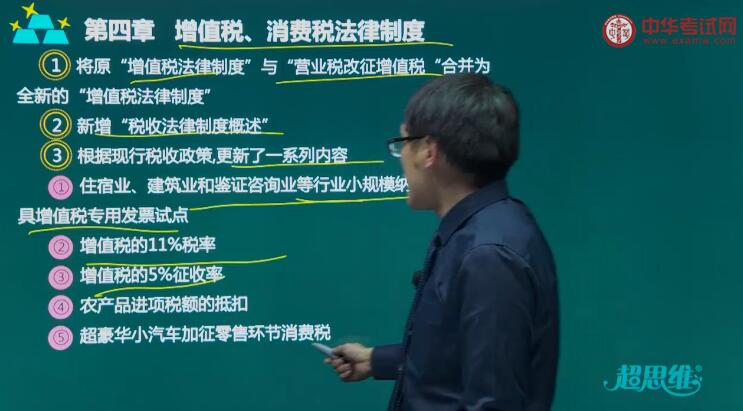 第四章 增值税、消费税法律制度
中华考试网
www.examw.com
① 将原“增值税法律制度”与“营业税改征增值税“合并为
全新的“增值税法律制度”
② 新增“税收法律制度概述”
③ 根据现行税收政策,更新了一系列内容
① 住宿业、建筑业和鉴证咨询业等行业小规模纳
具增值税专用发票试点
② 增值税的11%税率
③ 增值税的5%征收率
④ 农产品进项税额的抵扣
⑤ 超豪华小汽车加征零售环节消费税
超思维